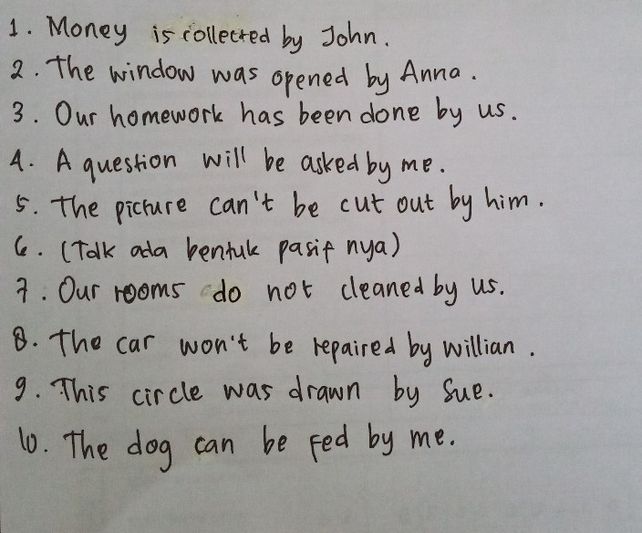 1. Money is collected by John.
2. The window was opened by Anna.
3. Our homework has been done by us.
4. A question will be asked by me.
5. The picture can't be cut out by him.
6. (Tdk ada bentuk pasif nya)
7. Our rooms do not cleaned by us.
8. The car won't be repaired by willian.
9. This circle was drawn by Sue.
10. The dog can be fed by me.